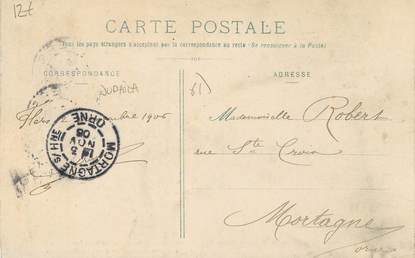 12f
CARTE POSTALE
Tous les pays étrangers n'acceptent pas la correspondance au recto (Se renseigner à la Poste)
CORRESPONDANCE
ADRESSE
JUDAICA
61)
Flers
1906
MORTAGNE S/HNE
NOV
06
ORNE
Mademoiselle Robert
rue Ste Croix
Mortagne
orne